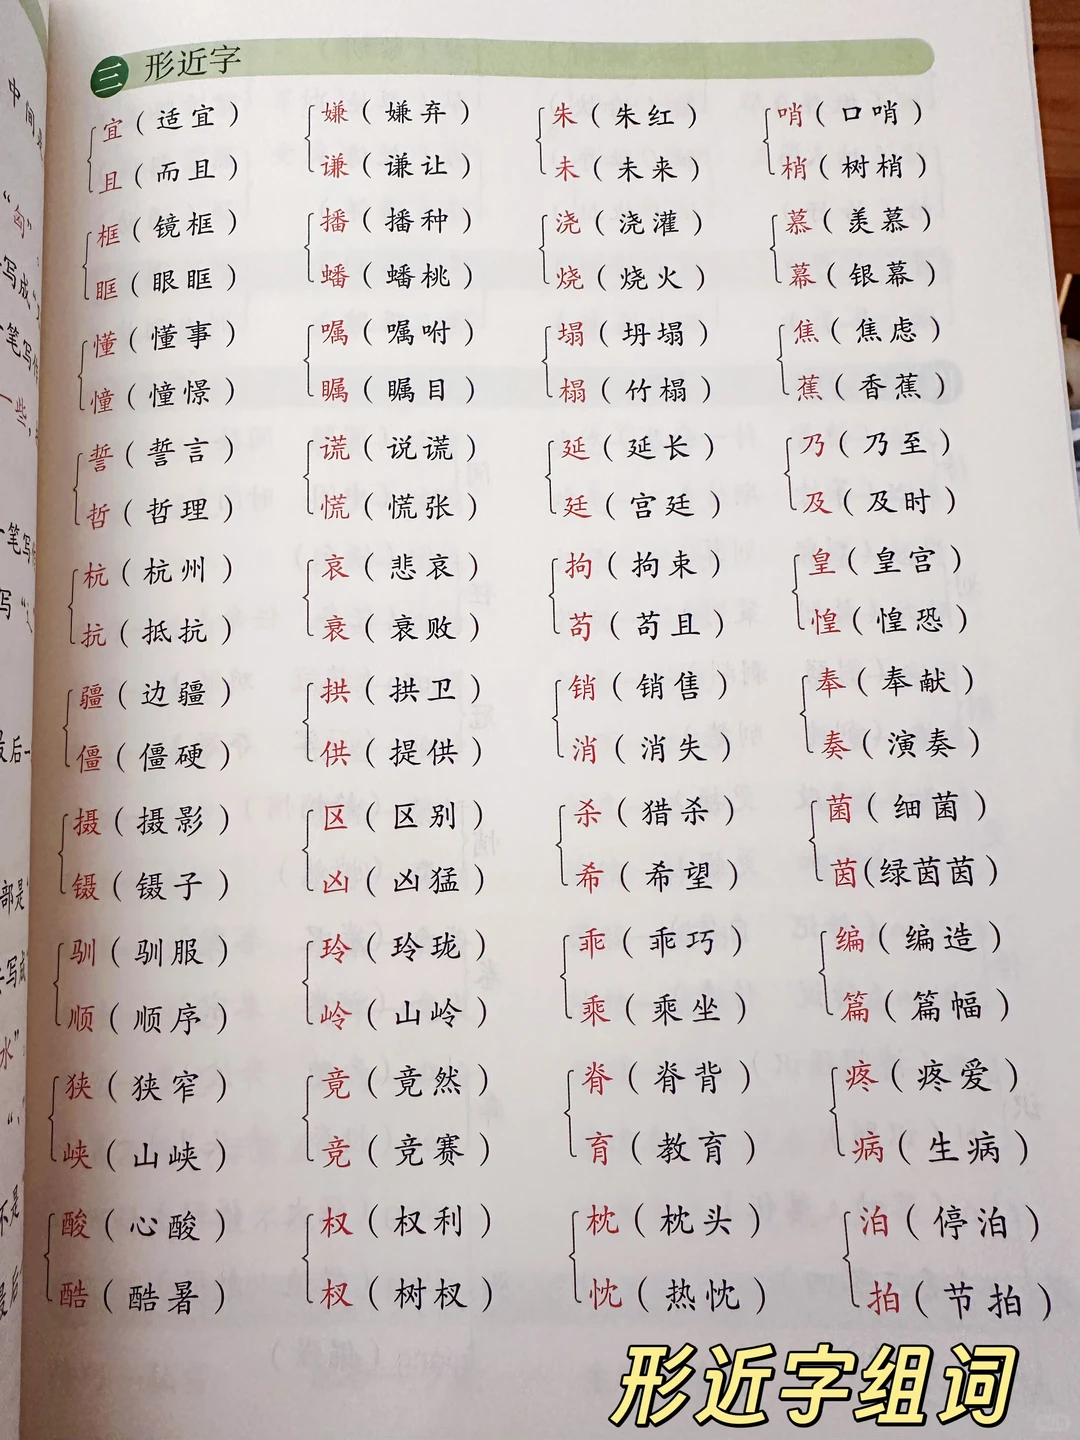 三 形近字
宜（适宜） 嫌（嫌弃） 朱（朱红） 哨（口哨）
且（而且） 谦（谦让） 未（未来） 梢（树梢）
框（镜框） 播（播种） 浇（浇灌） 慕（羡慕）
眶（眼眶） 蟠（蟠桃） 烧（烧火） 幕（银幕）
懂（懂事） 嘱（嘱咐） 塌（坍塌） 焦（焦虑）
憧（憧憬） 瞩（瞩目） 榻（竹榻） 蕉（香蕉）
誓（誓言） 谎（说谎） 延（延长） 乃（乃至）
哲（哲理） 慌（慌张） 廷（宫廷） 及（及时）
杭（杭州） 哀（悲哀） 拘（拘束） 皇（皇宫）
抗（抵抗） 衰（衰败） 苟（苟且） 惶（惶恐）
疆（边疆） 拱（拱卫） 销（销售） 奉（奉献）
僵（僵硬） 供（提供） 消（消失） 奏（演奏）
摄（摄影） 区（区别） 杀（猎杀） 菌（细菌）
镊（镊子） 凶（凶猛） 希（希望） 茵（绿茵茵）
驯（驯服） 玲（玲珑） 乖（乖巧） 编（编造）
顺（顺序） 岭（山岭） 乘（乘坐） 篇（篇幅）
狭（狭窄） 竟（竟然） 脊（脊背） 疼（疼爱）
峡（山峡） 竞（竞赛） 育（教育） 病（生病）
酸（心酸） 权（权利） 枕（枕头） 泊（停泊）
酷（酷暑） 杈（树杈） 忱（热忱） 拍（节拍）
形近字组词
中间
写成
一笔写
一些，
一笔写
写
最后一
部是
写成
水”
不是
最后